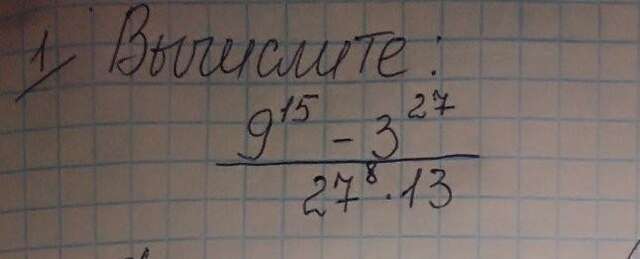 1/ Вычислите:
9¹⁵ - 3²⁷
27⁸ · 13